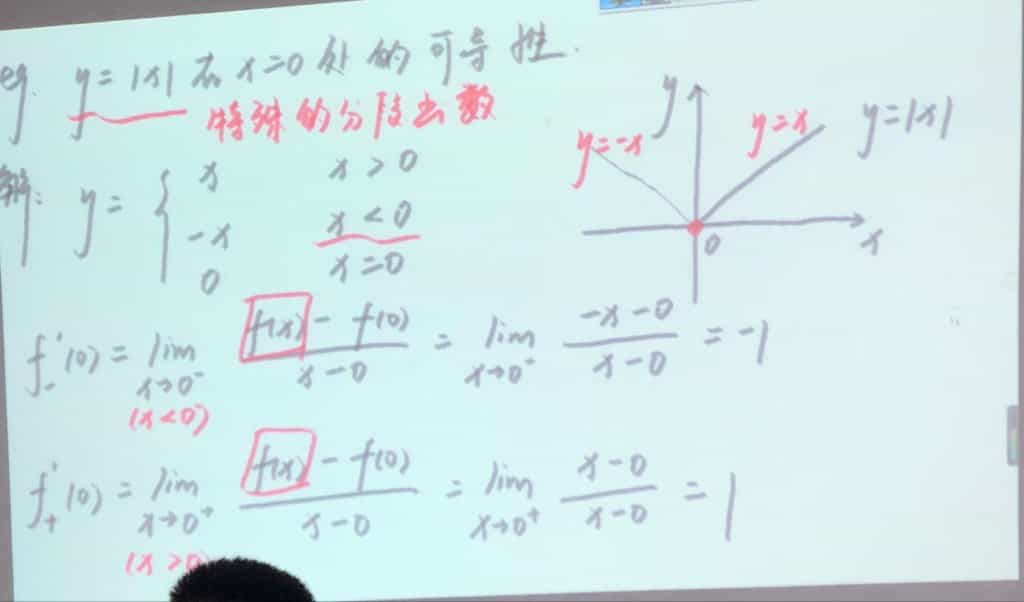 eg. y=|x| 在 x=0 处的可导性.
特殊的分段函数
解: y= { x  x>0
-x  x<0
0  x=0
y
y=-x
y=x
y=|x|
0
x
f₋'(0) = lim x→0⁻ (f(x) - f(0))/(x-0) = lim x→0⁻ (-x-0)/(x-0) = -1
(x<0)
f₊'(0) = lim x→0⁺ (f(x) - f(0))/(x-0) = lim x→0⁺ (x-0)/(x-0) = 1
(x>0